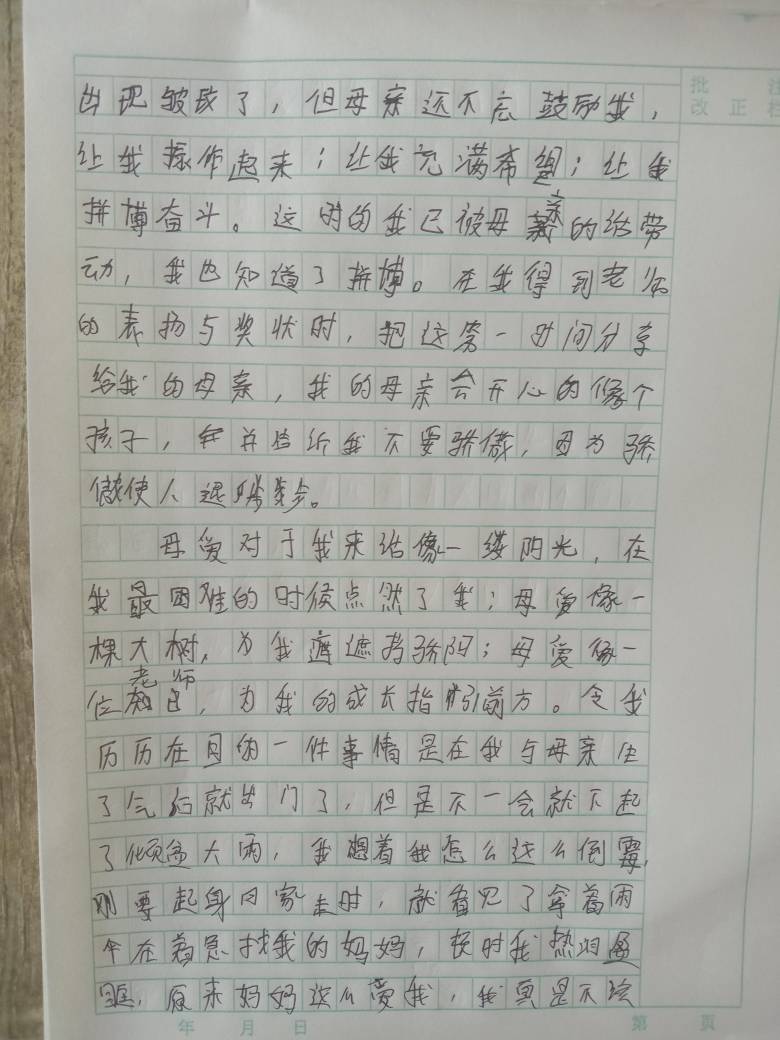 批 注
改 正 栏
出现皱纹了，但母亲还不忘鼓励我，
让我振作起来；让我充满希望；让我
拼博奋斗。这时的我已被母亲的话带
动，我也知道了拼博。在我得到老师
的表扬与奖状时，把这第一时间分享
给我的母亲，我的母亲会开心的像个
孩子，并告诉我不要骄傲，因为骄
傲使人退步。
母爱对于我来话像一缕阳光，在
我最困难的时候点燃了我；母爱像一
棵大树，为我遮挡骄阳；母爱像一
位老师，为我的成长指引前方。令我
历历在目的一件事情是在我与母亲生
了气后就出门了，但是不一会就下起
了倾盆大雨，我想着我怎么这么倒霉，
刚要起身回家走时，就看见了拿着雨
伞在着急找我的妈妈，顿时我热泪盈
眶，原来妈妈这么爱我，我真是不该
年 月 日 第 页